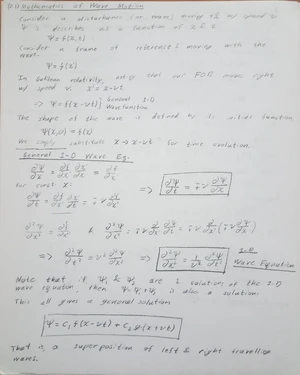 Mathematics of Wave Motion
Consider a disturbance (in 1D mass) moving +x w/ speed v
Ψ = describes as a function of x & t
Ψ = f(x,t)
Consider a frame of reference S moving with the
wave.
Ψ = f(x')
In Galilean relativity, our FOR moves right
w/ speed v. x' = x-vt
=> Ψ = f(x-vt) General 1-D
Wavefunction
The shape of the wave is defined by its initial function
Ψ(x,0) = f(x)
We simply substitute x → x-vt for time evolution.
General 1-D Wave Eq.
∂Ψ/∂x = ∂f/∂x' ∂x'/∂x = ∂f/∂x'
For const x:
∂Ψ/∂t = ∂f/∂x' ∂x'/∂t = ∓v ∂f/∂x'
=> ∂Ψ/∂t = ∓v ∂Ψ/∂x
∂²Ψ/∂x² = ∂²f/∂x'² &
=> ∂²Ψ/∂t² = v² ∂²f/∂x'² => ∂²Ψ/∂x² = 1/v² ∂²Ψ/∂t² 1-D
Wave Equation
Note that if Ψ₁ & Ψ₂ are 2 solutions of the 1-D
wave equation, then Ψ = Ψ₁ + Ψ₂ is also a solution.
This all gives a general solution
Ψ = C₁f(x-vt) + C₂g(x+vt)
That is a superposition of left & right travelling
waves.